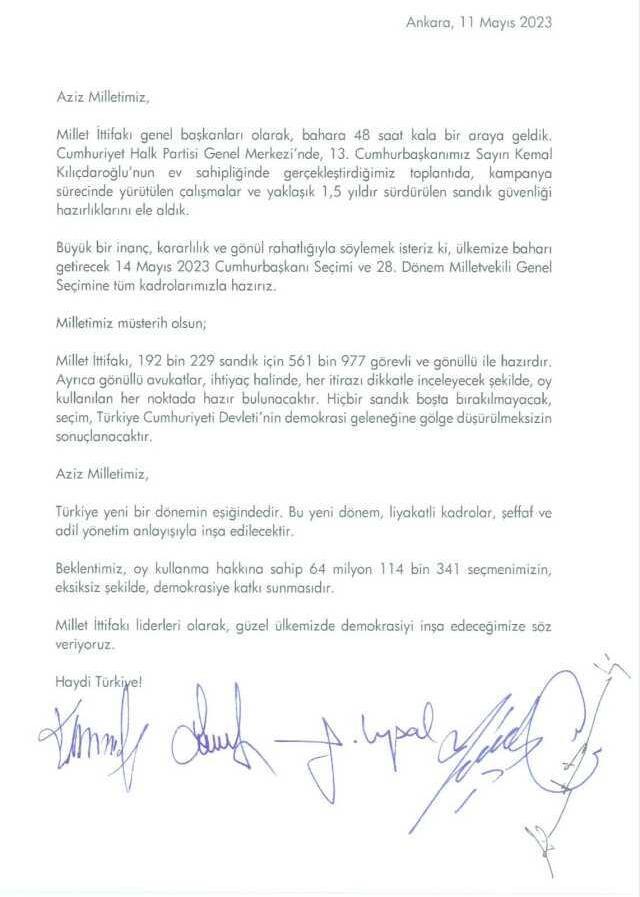 Ankara, 11 Mayıs 2023
Aziz Milletimiz,
Millet İttifakı genel başkanları olarak, bahara 48 saat kala bir araya geldik.
Cumhuriyet Halk Partisi Genel Merkezi'nde, 13. Cumhurbaşkanımız Sayın Kemal
Kılıçdaroğlu'nun ev sahipliğinde gerçekleştirdiğimiz toplantıda, kampanya
sürecinde yürütülen çalışmalar ve yaklaşık 1,5 yıldır sürdürülen sandık güvenliği
hazırlıklarını ele aldık.
Büyük bir inanç, kararlılık ve gönül rahatlığıyla söylemek isteriz ki, ülkemize baharı
getirecek 14 Mayıs 2023 Cumhurbaşkanı Seçimi ve 28. Dönem Milletvekili Genel
Seçimine tüm kadrolarımızla hazırız.
Milletimiz müsterih olsun;
Millet İttifakı, 192 bin 229 sandık için 561 bin 977 görevli ve gönüllü ile hazırdır.
Ayrıca gönüllü avukatlar, ihtiyaç halinde, her itirazı dikkatle inceleyecek şekilde, oy
kullanılan her noktada hazır bulunacaktır. Hiçbir sandık boşta bırakılmayacak,
seçim, Türkiye Cumhuriyeti Devleti'nin demokrasi geleneğine gölge düşürülmeksizin
sonuçlanacaktır.
Aziz Milletimiz,
Türkiye yeni bir dönemin eşiğindedir. Bu yeni dönem, liyakatli kadrolar, şeffaf ve
adil yönetim anlayışıyla inşa edilecektir.
Beklentimiz, oy kullanma hakkına sahip 64 milyon 114 bin 341 seçmenimizin,
eksiksiz şekilde, demokrasiye katkı sunmasıdır.
Millet İttifakı liderleri olarak, güzel ülkemizde demokrasiyi inşa edeceğimize söz
veriyoruz.
Haydi Türkiye!